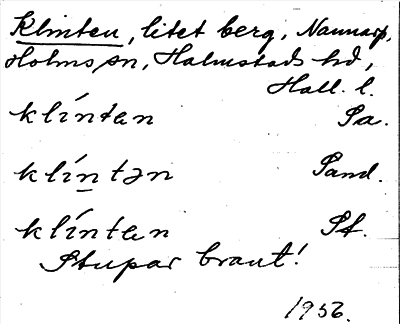 Klinten, litet berg, Nannarp,
Holms sn, Halmstads hd,
Hall. l.
klíntan Sa.
klíntən Sand.
klíntan St.
Stupar brant!
1956.